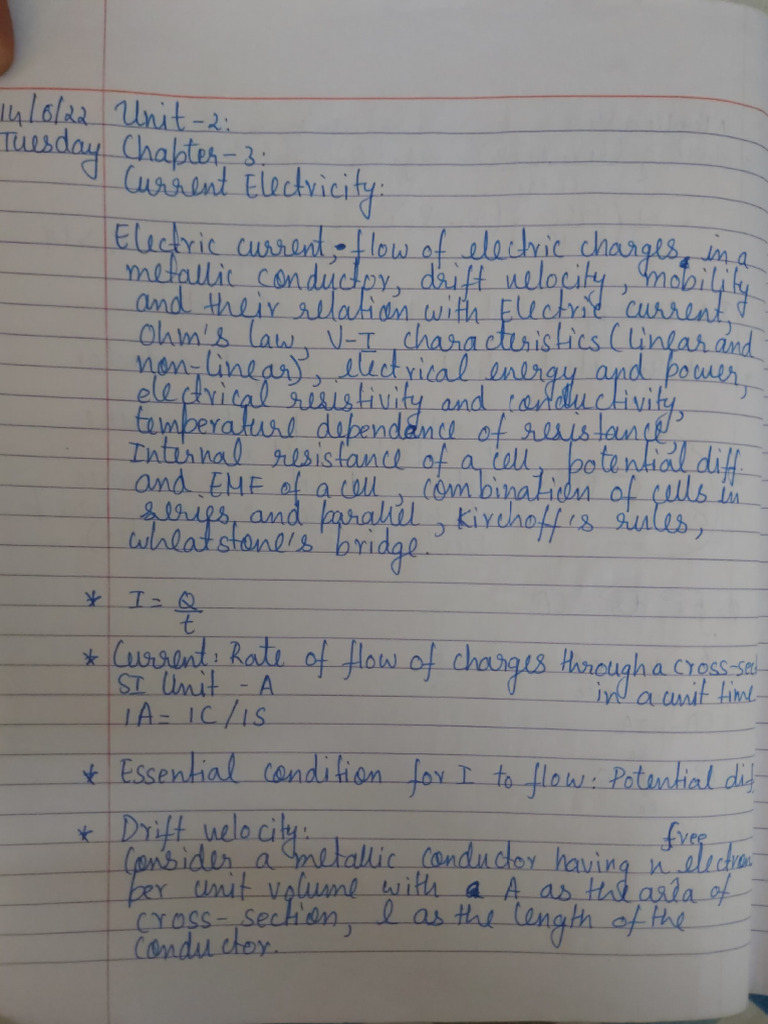 14/6/22 Unit-2:
Tuesday Chapter-3:
Current Electricity:
Electric current, flow of electric charges in a
metallic conductor, drift velocity, mobility
and their relation with Electric current,
Ohm's law, V-I characteristics (linear and
non-linear), electrical energy and power,
electrical resistivity and conductivity,
temperature dependance of resistance,
Internal resistance of a cell, potential diff.
and EMF of a cell, combination of cells in
series and parallel, Kirchoff's rules,
wheatstone's bridge.
* I = Q/t
* Current: Rate of flow of charges through a cross-sec
SI Unit - A in a unit time
1A = 1C/1S
* Essential condition for I to flow: Potential dif
* Drift velocity:
Consider a metallic conductor having n free electron
per unit volume with A as the area of
cross-section, l as the length of the
conductor.